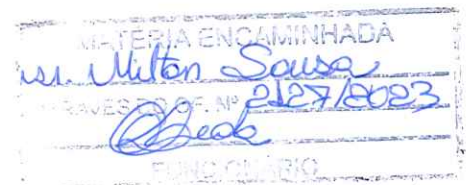 MATERIA ENCAMINHADA
Milton Sousa
OF. Nº 2127/2023
FUNCIONÁRIO